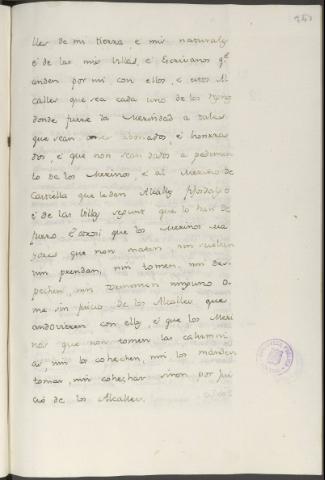 lles de mi tierra, e mis naturales
é de las mis Villas, é Escrivanos qe
anden por mi con ellos, e estos Al
calles que sea cada uno de los
donde fuere la Merindad a tales
que sean omes abonados, é honrra
dos, é que non sean dados a pedimen
to de los Merinos, e al Merino de
Castiella que le den Alcalle fijodalgo
é de las Villas segunt que lo han de
fuero. E otrosi que los Merinos ma
yores que non maten, nin suelten
nin prendan, nin tomen, nin des
pechen, nin ninguno o
me sin juicio de los Alcalles que
andovieren con ellos, é que los Meri
nos que non tomen las calumni
as, nin lo cohechen, nin los manden
tomar, nin cohechar sinon por jui
cio de los Alcalles.